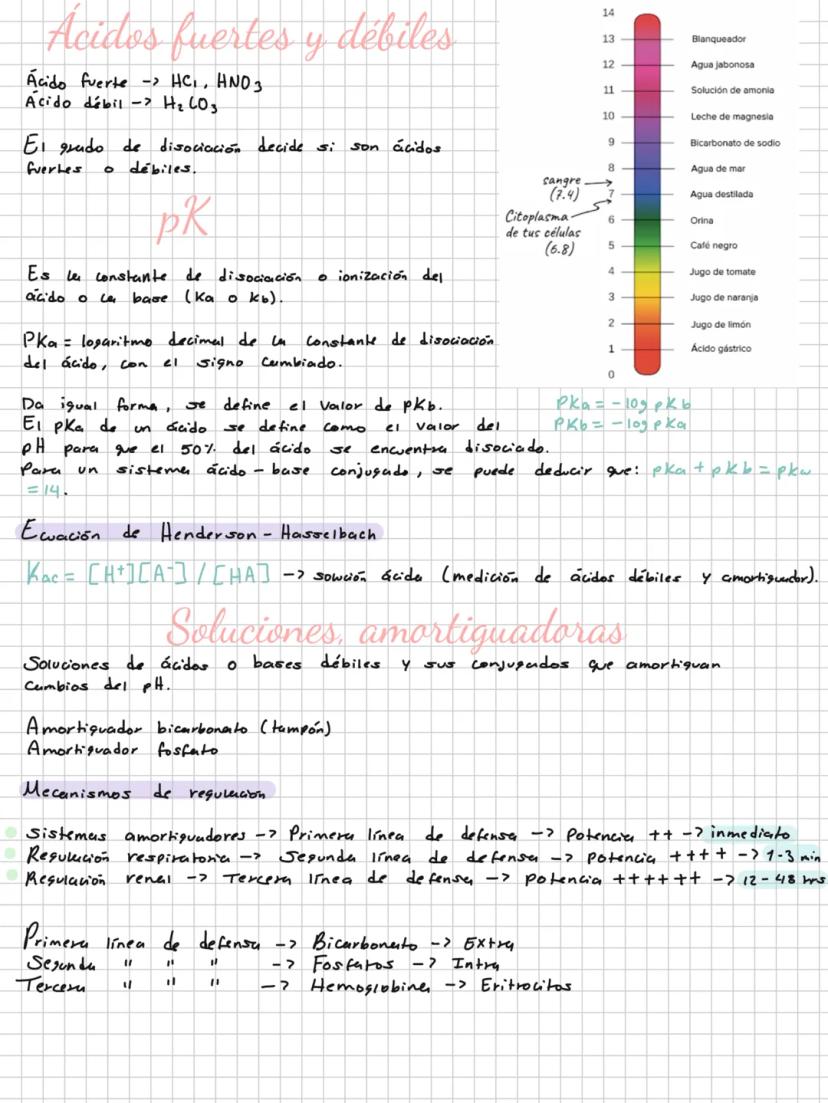 Ácidos fuertes y débiles
Ácido fuerte -> HCl, HNO3
Ácido débil -> H2CO3
El grado de disociación decide si son ácidos
fuertes o débiles.
14
13 Blanqueador
12 Agua jabonosa
11 Solución de amonia
10 Leche de magnesia
9 Bicarbonato de sodio
8 Agua de mar
sangre
(7.4)
7 Agua destilada
Citoplasma
de tus células
(6.8)
6 Orina
5 Café negro
4 Jugo de tomate
3 Jugo de naranja
2 Jugo de limón
1 Ácido gástrico
0
pK
Es la constante de disociación o ionización del
ácido o la base (Ka o Kb).
PKa = logaritmo decimal de la constante de disociación
del ácido, con el signo cambiado.
Da igual forma, se define el valor de pKb.
El pKa de un ácido se define como el valor del
pH para que el 50% del ácido se encuentra disociado.
PKa = -log pKb
PKb = -log pKa
Para un sistema ácido - base conjugado, se puede deducir que: pKa + pKb = pKw
= 14.
Ecuación de Henderson - Hasselbach
Kac = [H+][A-] / [HA] -> solución ácida (medición de ácidos débiles y amortiguador).
Soluciones, amortiguadoras
Soluciones de ácidos o bases débiles y sus conjugados que amortiguan
cambios del pH.
Amortiguador bicarbonato (tampón)
Amortiguador fosfato
Mecanismos de regulación
Sistemas amortiguadores -> Primera línea de defensa -> Potencia ++ -> inmediato
Regulación respiratoria -> Segunda línea de defensa -> Potencia ++++ -> 1-3 min
Regulación renal -> Tercera línea de defensa -> Potencia ++++++ -> 12 - 48 hrs
Primera línea de defensa -> Bicarbonato -> Extra
Segunda " " " -> Fosfatos -> Intra
Tercera " " " -> Hemoglobina -> Eritrocitos